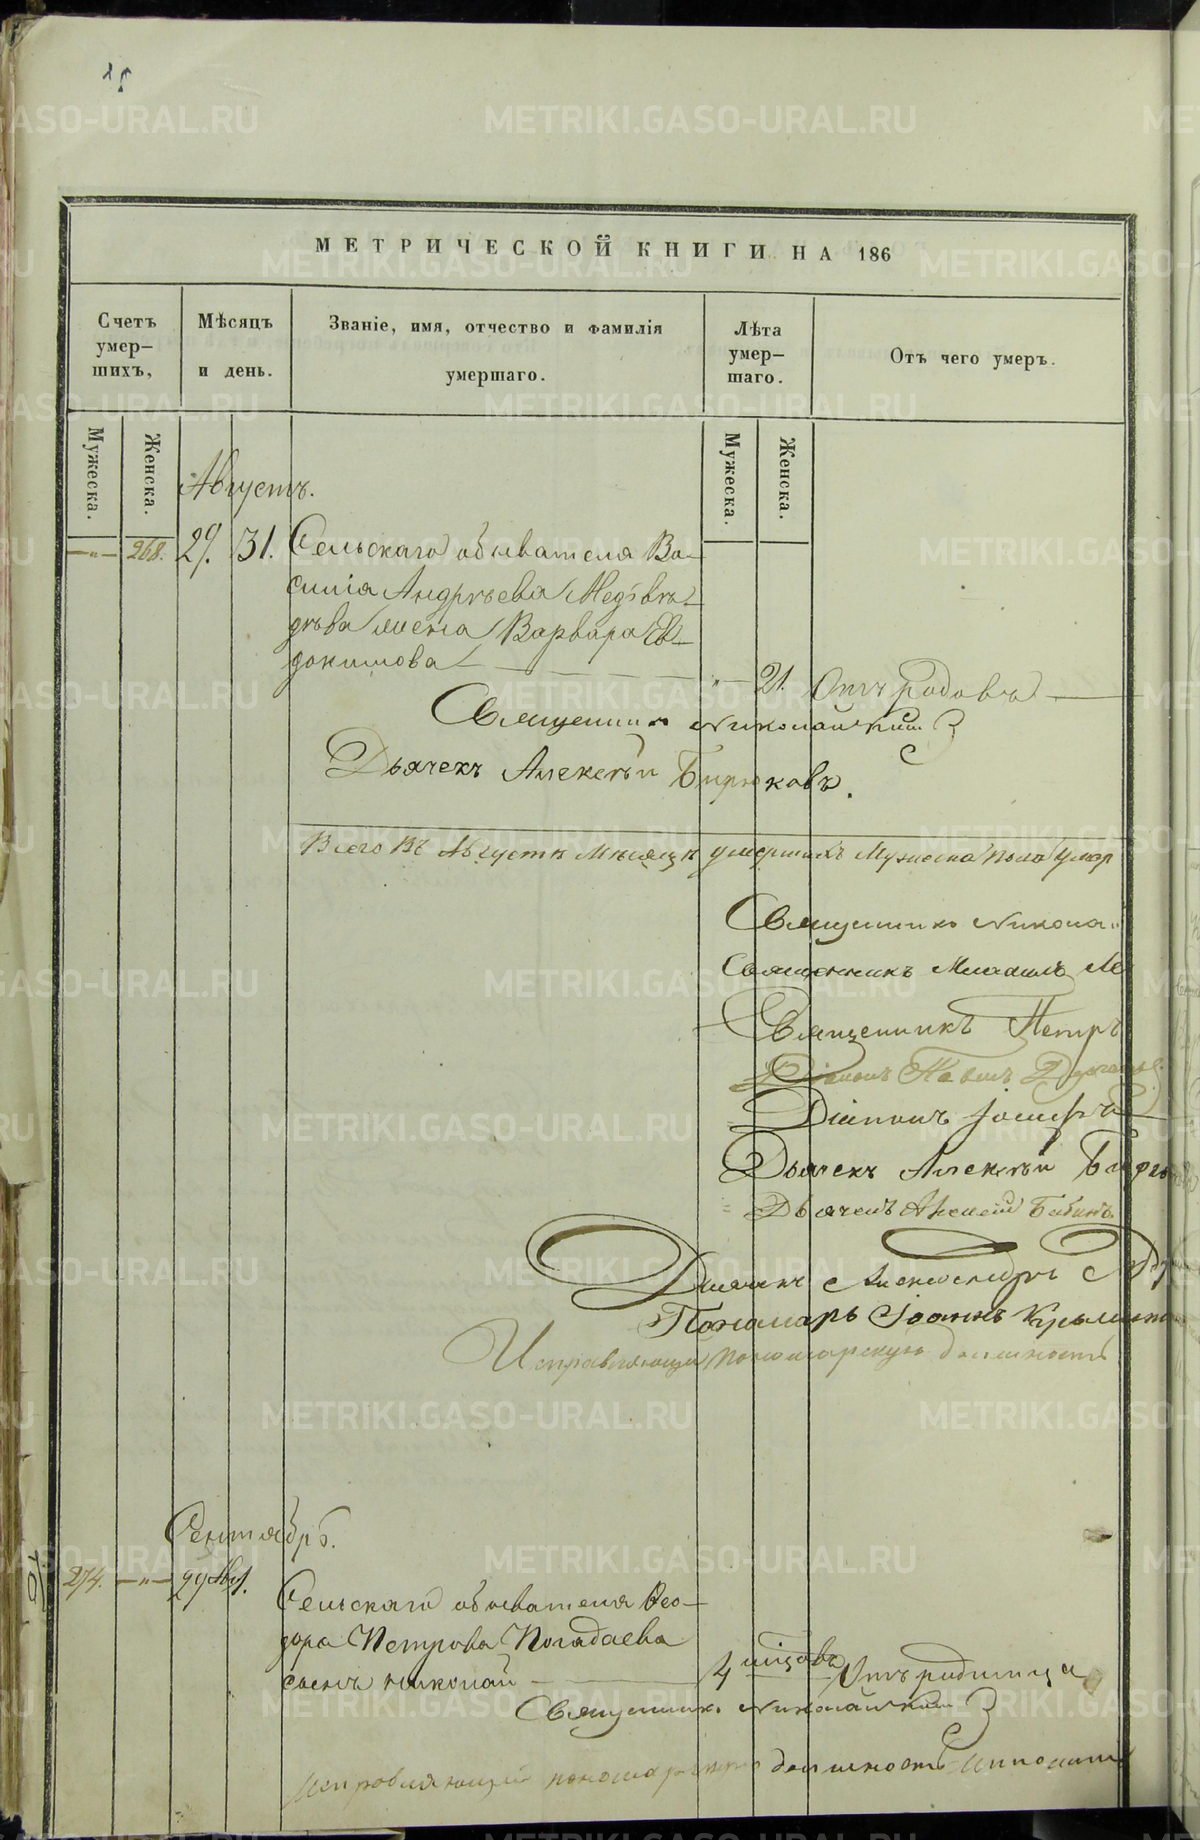 МЕТРИЧЕСКОЙ КНИГИ НА 186
Счетъ умер-шихъ,
Мѣсяцъ и день.
Званіе, имя, отчество и фамилія умершаго.
Лѣта умер-шаго.
Отъ чего умеръ.
Мужеска.
Женска.
Мужеска.
Женска.
Августъ.
— " — 268. 29. 31. Сельскаго обывателя Ва-
силія Андреева Медвѣ-
дева жена Варвара Ев-
докимова
" — 21. Отъ родовъ
Священникъ Николай
Дьячекъ Алексѣй Бирюковъ.
Всего въ Августѣ мѣсяцѣ умершихъ мужеска пола умер
Священникъ Никола
Священникъ Михаилъ
Священникъ Петръ
Діаконъ Павелъ
Діаконъ Іосифъ
Дьячекъ Алексѣй Бирю
Дьячекъ Алексѣй Бабинъ
Дьячекъ Александръ
Пономарь Іоаннъ
Исправляющій пономарскую должность
Сентябрь.
274. — " — 29 Авг. Сельскаго обывателя Ѳео-
дора Петрова Погадаева
сынъ Николай
4 мѣсяцовъ Отъ родимца
Священникъ Николай
Исправляющій пономарскую должность Ипполитъ
METRIKI.GASO-URAL.RU